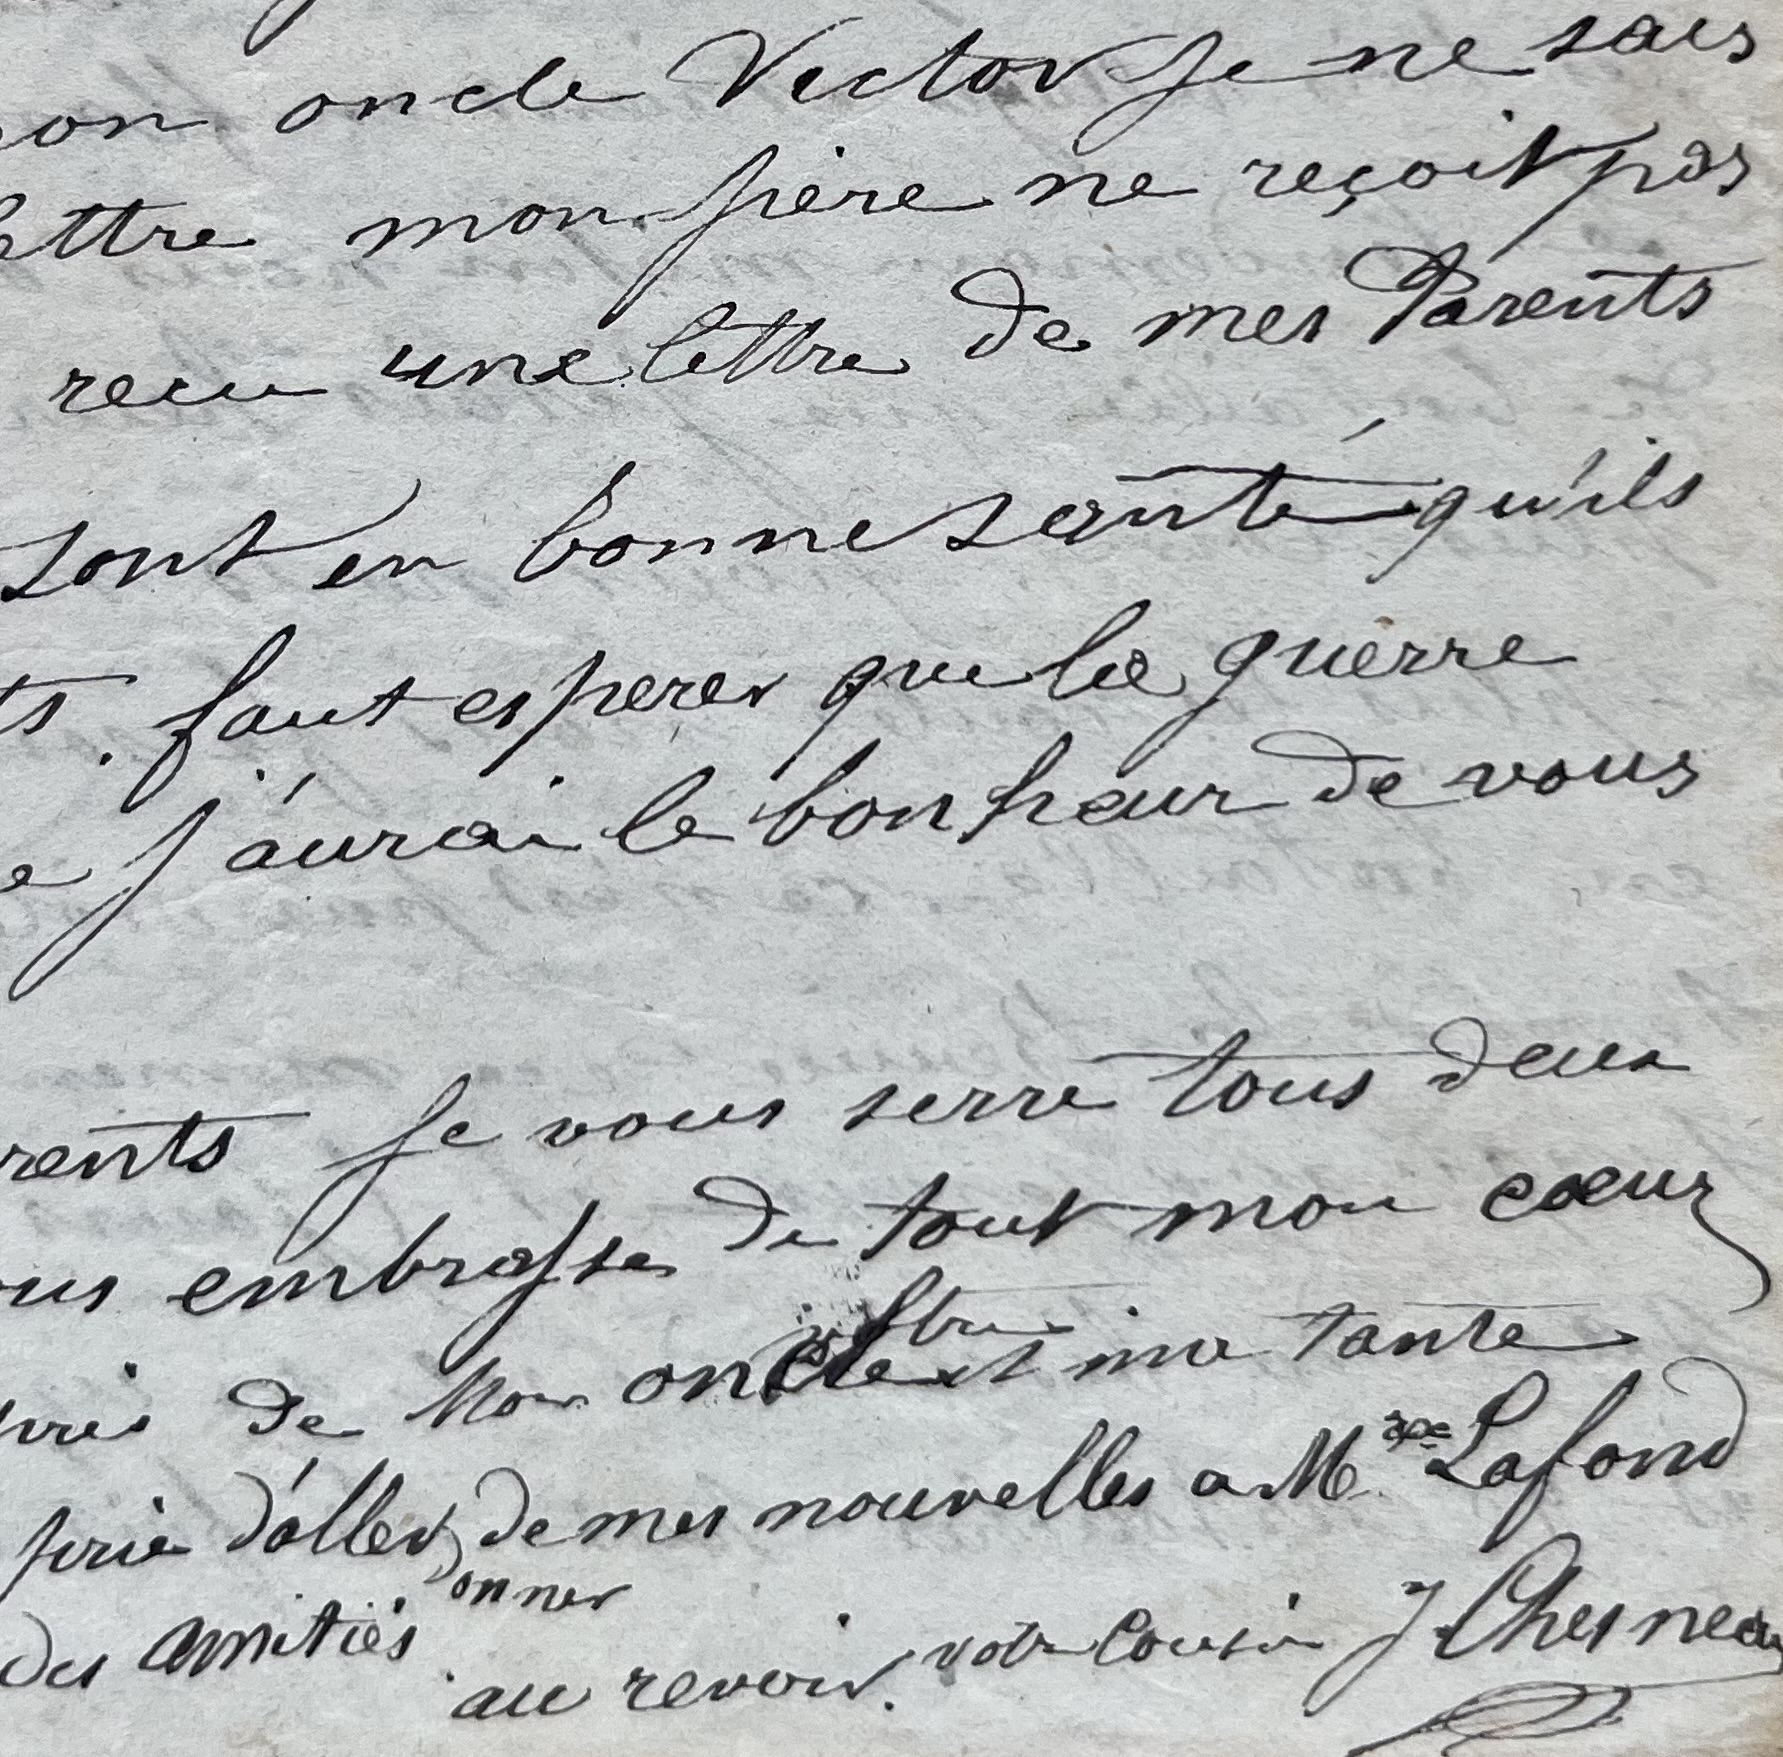 on oncle Victor Je ne sais
ettre mon frère ne reçoit pas
recu une lettre de mes Parents
sont en bonne santé qu'ils
ts. faut esperer que la guerre
e j'aurai le bonheur de vous
rents Je vous serre tous deux
ous embrasse de tout mon cœur
de mon oncle et ma tante
prie d'aller donner de mes nouvelles a Mme Lafond
des amitiés
au revoir. votre Cousin J Chesneau